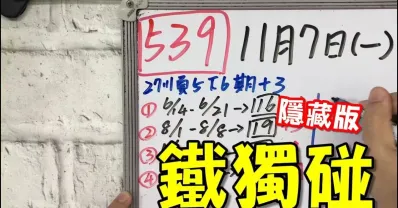 539 11月7日(一)
27順5下6期+3
① 6/14-6/21→116
② 8/1-8/8→119
③
④
隱藏版
鐵獨碰